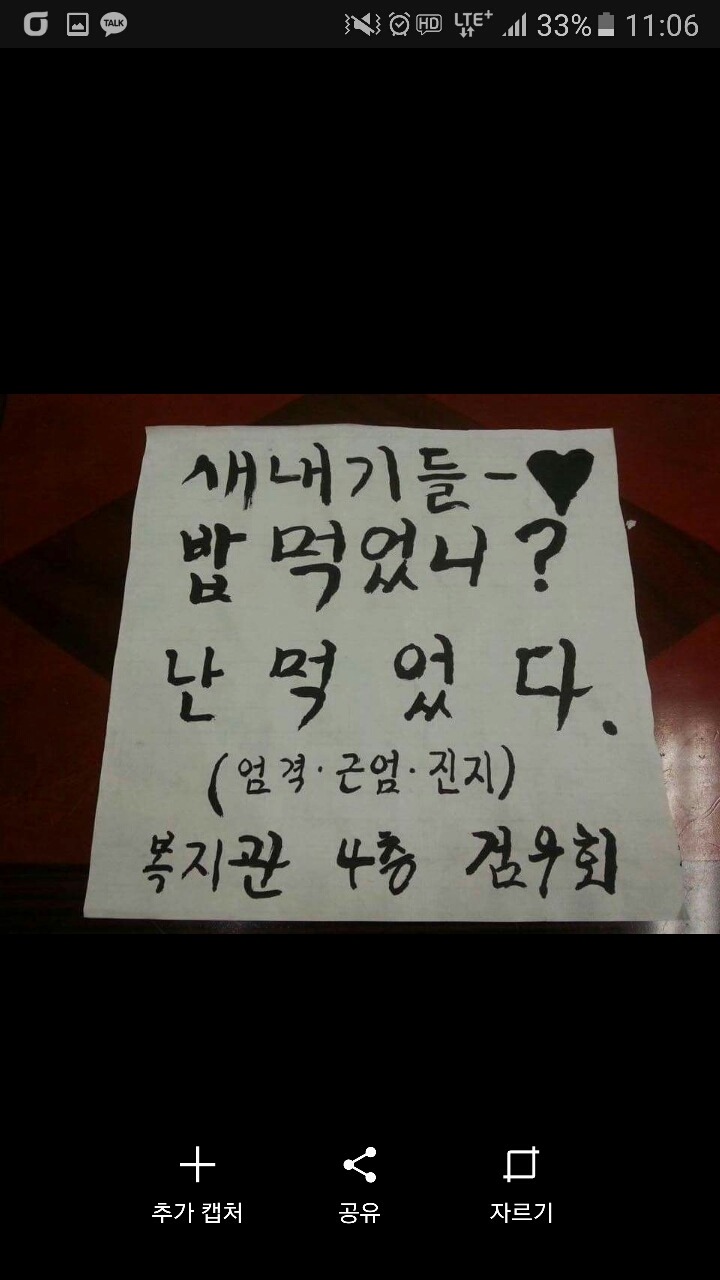 TALK HD LTE+ 33% 11:06
새내기들-♥
밥 먹었니?
난 먹 었 다.
(엄격·근엄·진지)
복지관 4층 검우회
추가 캡처 공유 자르기